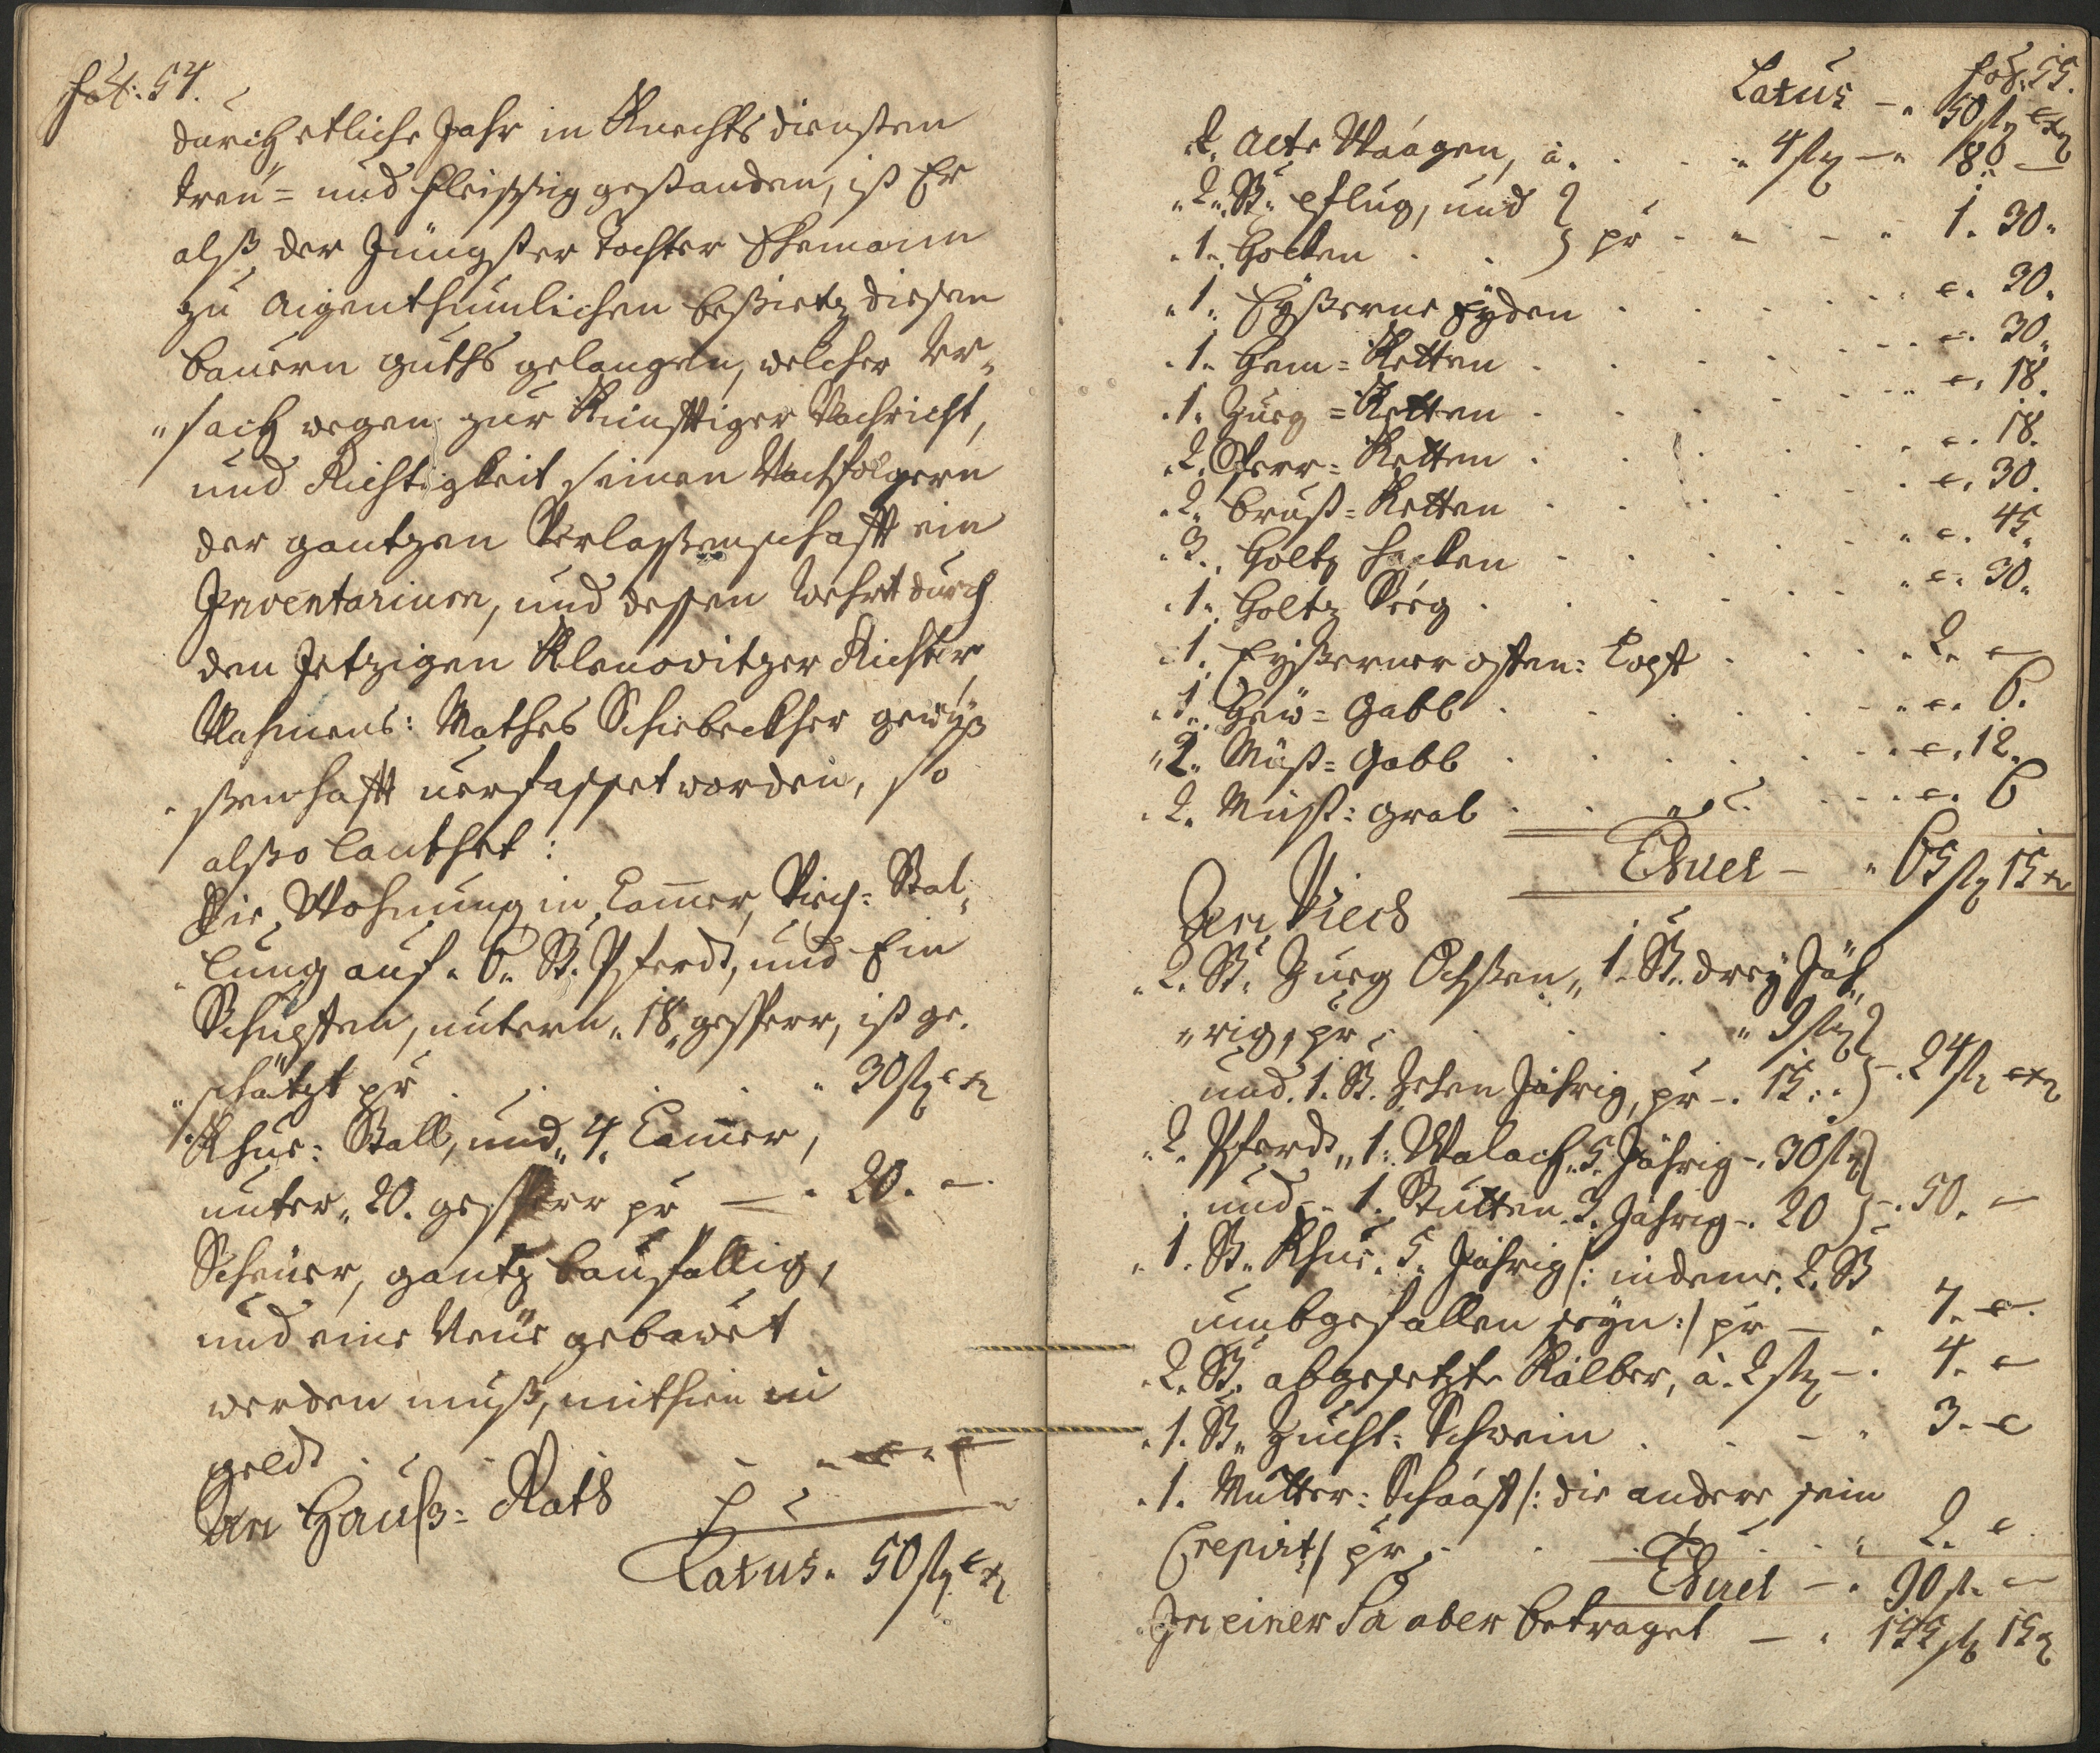 fol: 54.
durch etliche Jahr in Knechts diensten
treu= und fleissig gestanden, ist Er
alß der Jüngster Tochter Ehemann
zu aigenthumlichen besietz diesen
bauern guths gelangen, welcher Ur„
„sach wegen zur Kunfftiger Nachricht,
und Richtigkeit seinen Nachfolgern
der gantzen Verlaßenschafft ein
Inventarium, und dessen Wehrt durch
den Jetzigen Klenovitzer Richter
Nahmens: Mathes Schiebeckher gewiß
„ßenhafft verfasset worden, so
alßo lauthet:
Die Wohnung in Cam̄er, Viech: Stal„
„lung auf „6„ St. Pferdt, und Ein
Schupfen, untern „18„ gesperr, ist ge„
„schätzt pr . . . . „ 30 fl x
Khue: Stall, und „4. Cam̄er,
unter „20. gesperr pr — „ 20. —
Scheuer, gantz baufällig,
und eine Neue gebawet
werden muß, mithin in
geld . . .
An Hauß: Rath
Latus. 50 fl x
fol. 55.
Latus — „ 50 fl x
2. alte Waagen, à . . . 4 fl — „ 8 „ —
„2„ St. pflug, und
„1„ Hocken . . } pr - - - „ 1. 30„
„1„ Eyßerne Eyden . . . . 30.
„1„ Hem= Ketten . . . . 30„
„1„ Zueg= Ketten . . . . 18.
„2„ Sperr= Ketten . . . . 18.
„2„ brust= Ketten . . . . 30.
„3„ Holtz hacken . . . . 45„
„1„ Holtz Seeg . . . . 30„
„1„ Eyßerner ofen: Topf . . . „ 2. —
„1„ Hew= Gabl . . . . 6.
„2„ Müst= Gabl . . . . 12.
„2„ Müst: grab . . . . 6
Thuet — „ 65 fl 15 x
An Viech
„2„ St. Zueg Ochßen, „1„ St. drey Jäh„
„rig, pr . . . „ 9 fl
und „1„ St. Zehen Jährig, pr — „ 15 „ } „ 24 fl x
„2„ Pferdt, „1„ Walach „5„ Jährig — „ 30 fl
und — „1„ Stutten „3„ Jährig — „ 20 } — „ 50. —
„1„ St. Khue „5„ Jährig /: indeme „2„ St
umbgefallen seyn :/ pr — „ 7. —
„2„ St. abgesetzte Kälber, à 2 fl — „ 4. —
„1„ St. Zucht: Schwein . . - „ 3. —
„1„ Mutter: Schaaff /: die andere sein
Crepirt :/ pr . . . . „ 2. —
Thuet — „ 90 fl. —
In einer Sa aber betraget — „ 155 fl 15 x